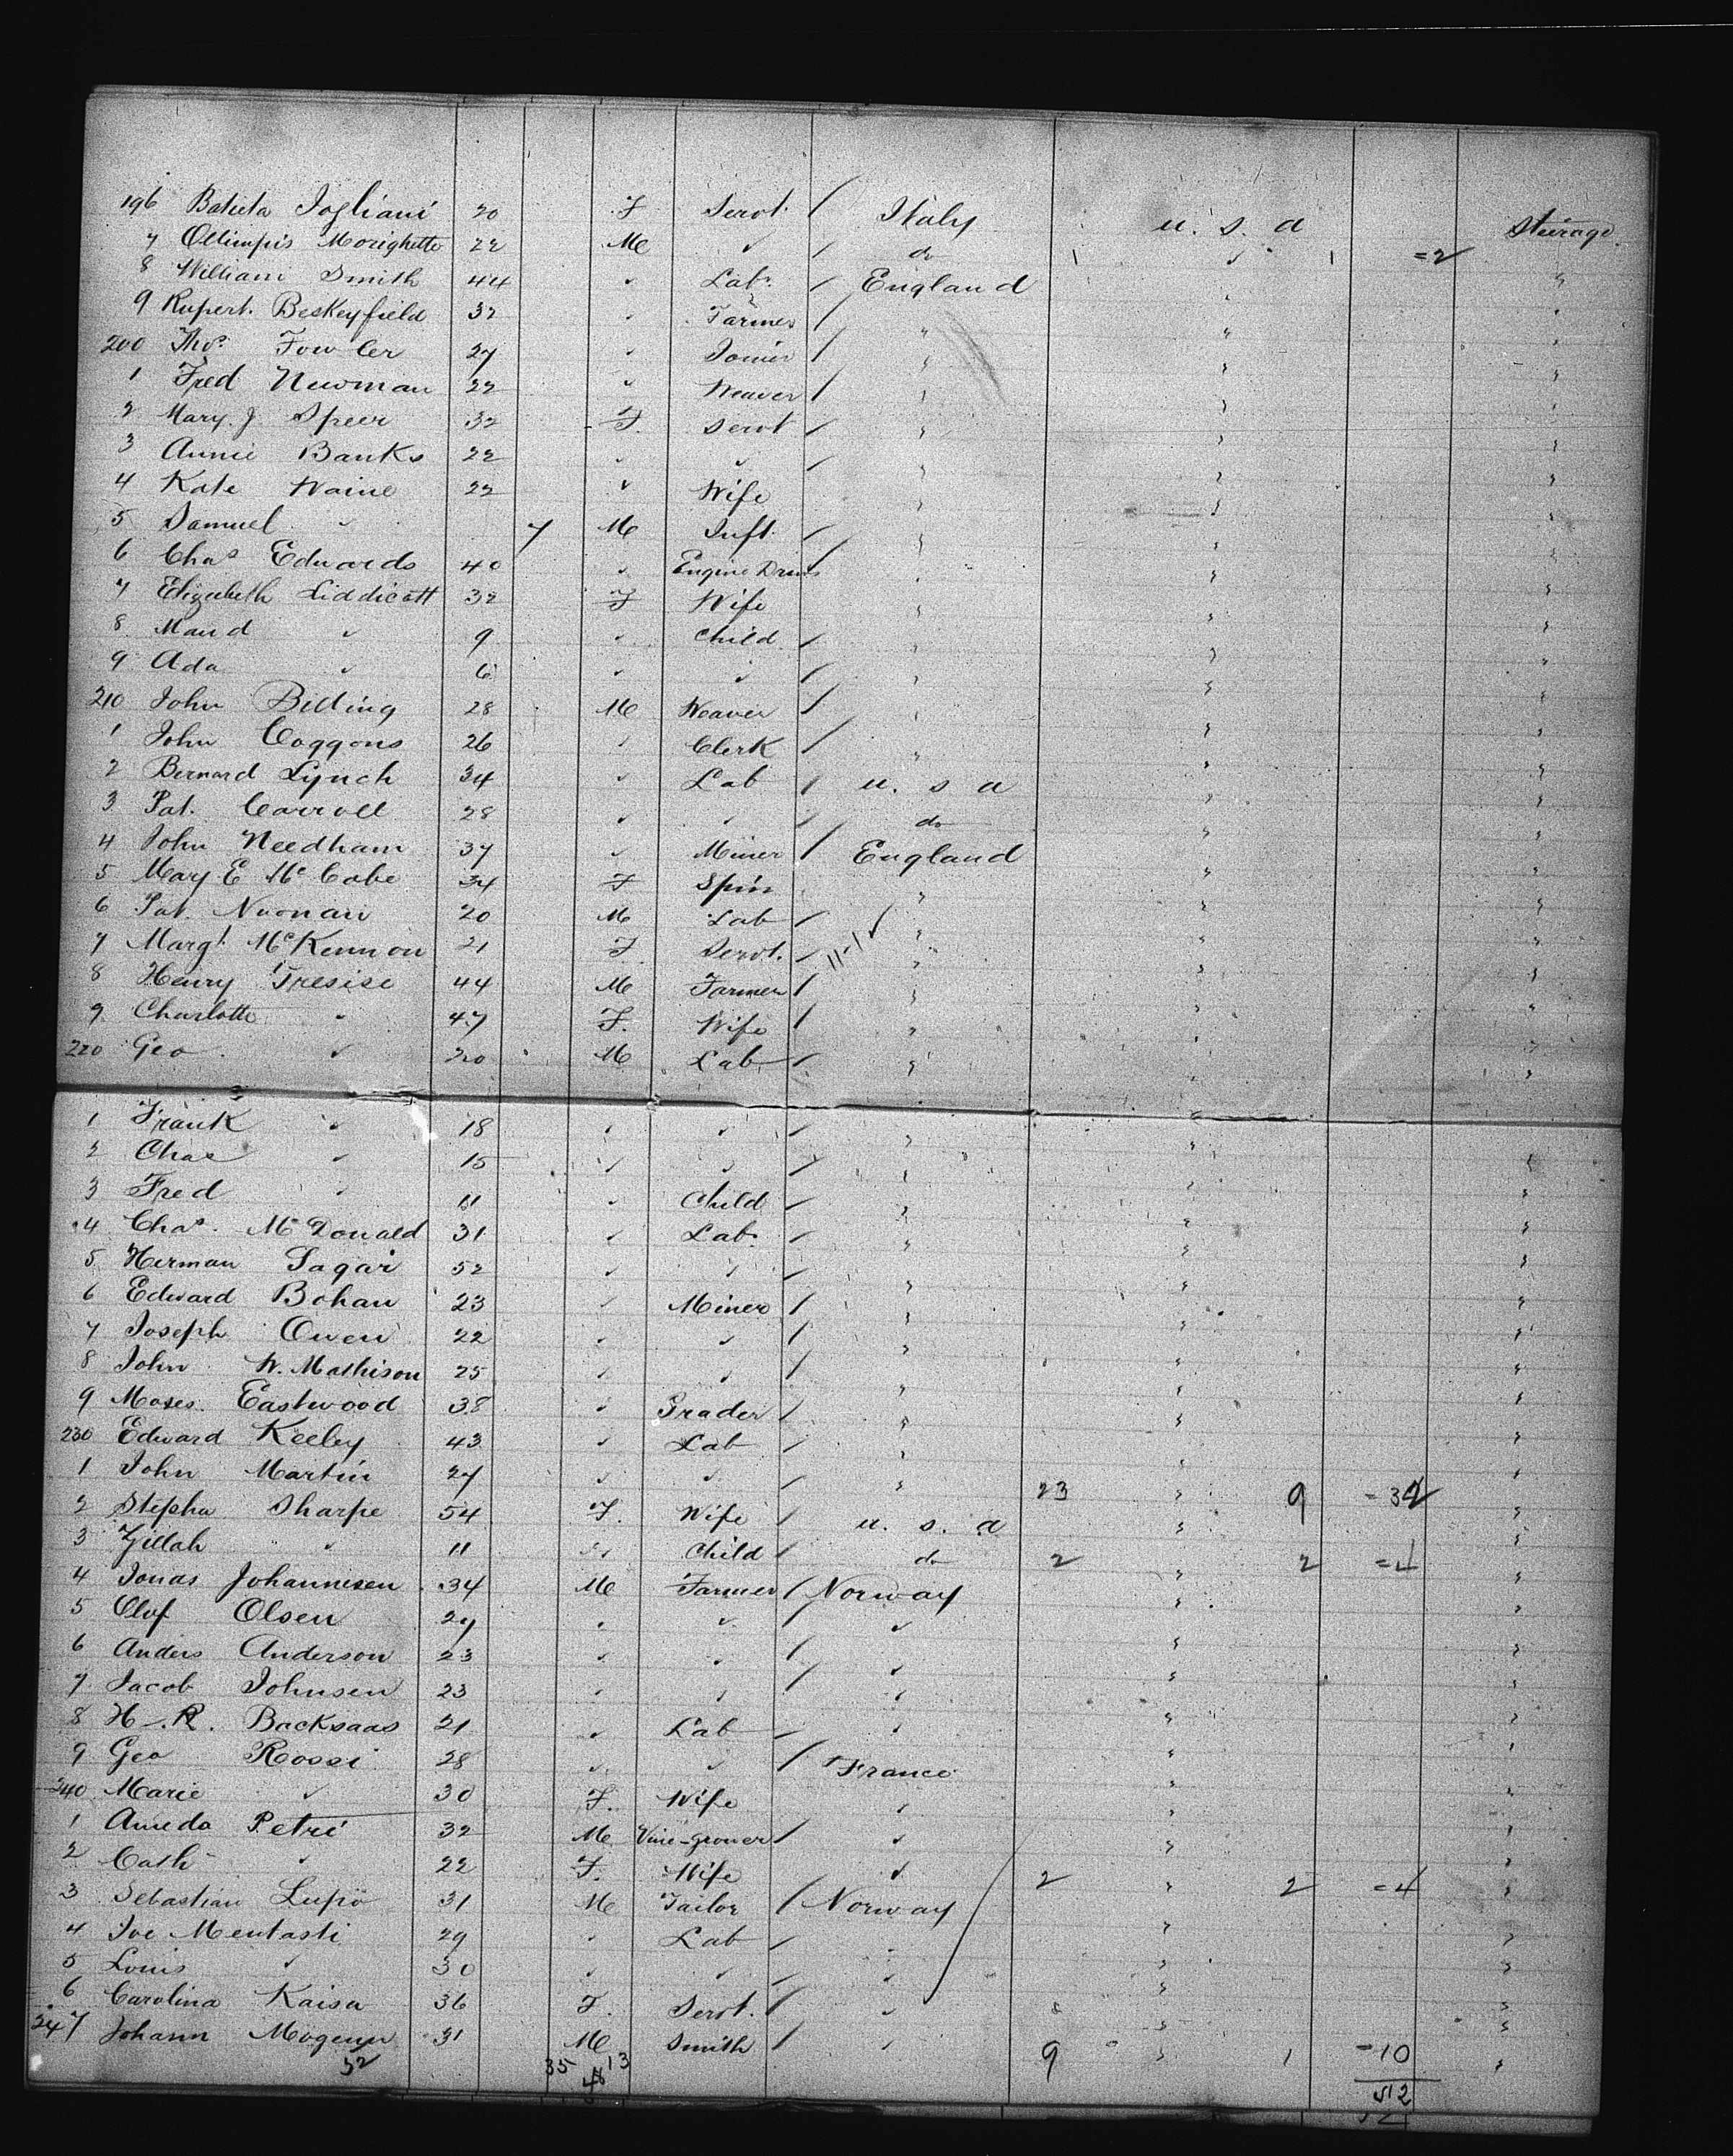 196 Batista Togliani 20 F Servt / Italy U. S. A Steerage
7 Ollimpis Morighetto 22 M ✓ / do ✓ =2 "
8 William Smith 44 ✓ Labr / England " "
9 Rupert Beskeyfield 32 " Farmer / " "
200 Thos Fowler 27 " Joiner / " " "
1 Fred Newman 22 " Weaver / " " "
2 Mary. J Speer 32 F. Servt / " " "
3 Annie Banks 22 " " / " " "
4 Kate Waine 22 " Wife " " "
5 Samuel " 7 M Inft / " " "
6 Chas Edwards 40 " Engine Driver / " " "
7 Elizabeth Liddicott 32 F Wife " " "
8 Maud " 9 " Child / " " "
9 Ada " 6 " " / " " "
210 John Billing 28 M Weaver / " " "
1 John Coggons 26 " Clerk / " " "
2 Bernard Lynch 34 " Lab / U. S A " "
3 Pat. Carroll 28 " " / do " "
4 John Needham 37 " Miner / England " "
5 Mary E McCabe 34 F Spin " " "
6 Pat. Noonan 20 M Lab / " " "
7 Margt McKennon 21 F Servt. / 11-1 ✓ " " "
8 Henry Tresise 44 M Farmer / " " "
9 Charlotte " 47 F. Wife / " " "
220 Geo " 20 M Lab / " " "
1 Frank " 18 " " / " " "
2 Chas " 15 " " / " " "
3 Fred " 11 " Child / " " "
4 Chas. McDonald 31 " Lab. / " " "
5 Herman Sagar 52 " " / " " "
6 Edward Bohan 23 " Miner / " " "
7 Joseph Owen 22 " " / " " "
8 John W. Mathison 25 " " / " " "
9 Moses Eastwood 38 " Grader / " " "
230 Edward Keeley 43 " Lab / " " "
1 John Martin 27 " " / " 23 " 9 =32 "
2 Stepha Sharpe 54 F. Wife / U. S. A " "
3 Zillah " 11 " Child / do 2 " 2 =4 "
4 Jonas Johannesen 34 M Farmer / Norway " "
5 Olof Olsen 27 " " / " " "
6 Anders Anderson 23 " " / " " "
7 Jacob Johnsen 23 " " / " " "
8 H. R. Backsaas 21 " Lab / " " "
9 Geo Rossi 28 " " / France " "
240 Marie " 30 F. Wife " " "
1 Ameda Petri 32 M Vine-grower / " " "
2 Cath " 22 F. Wife " 2 " 2 =4 "
3 Sebastian Lupo 31 M Tailor / Norway " "
4 Joe Mentasti 29 " Lab / " " "
5 Louis " 30 " " / " " "
6 Carolina Kaisa 36 F. Servt. / " " "
247 Johann Mogenn 31 M Smith / " 9 " 1 =10 "
52 35 13 48 52